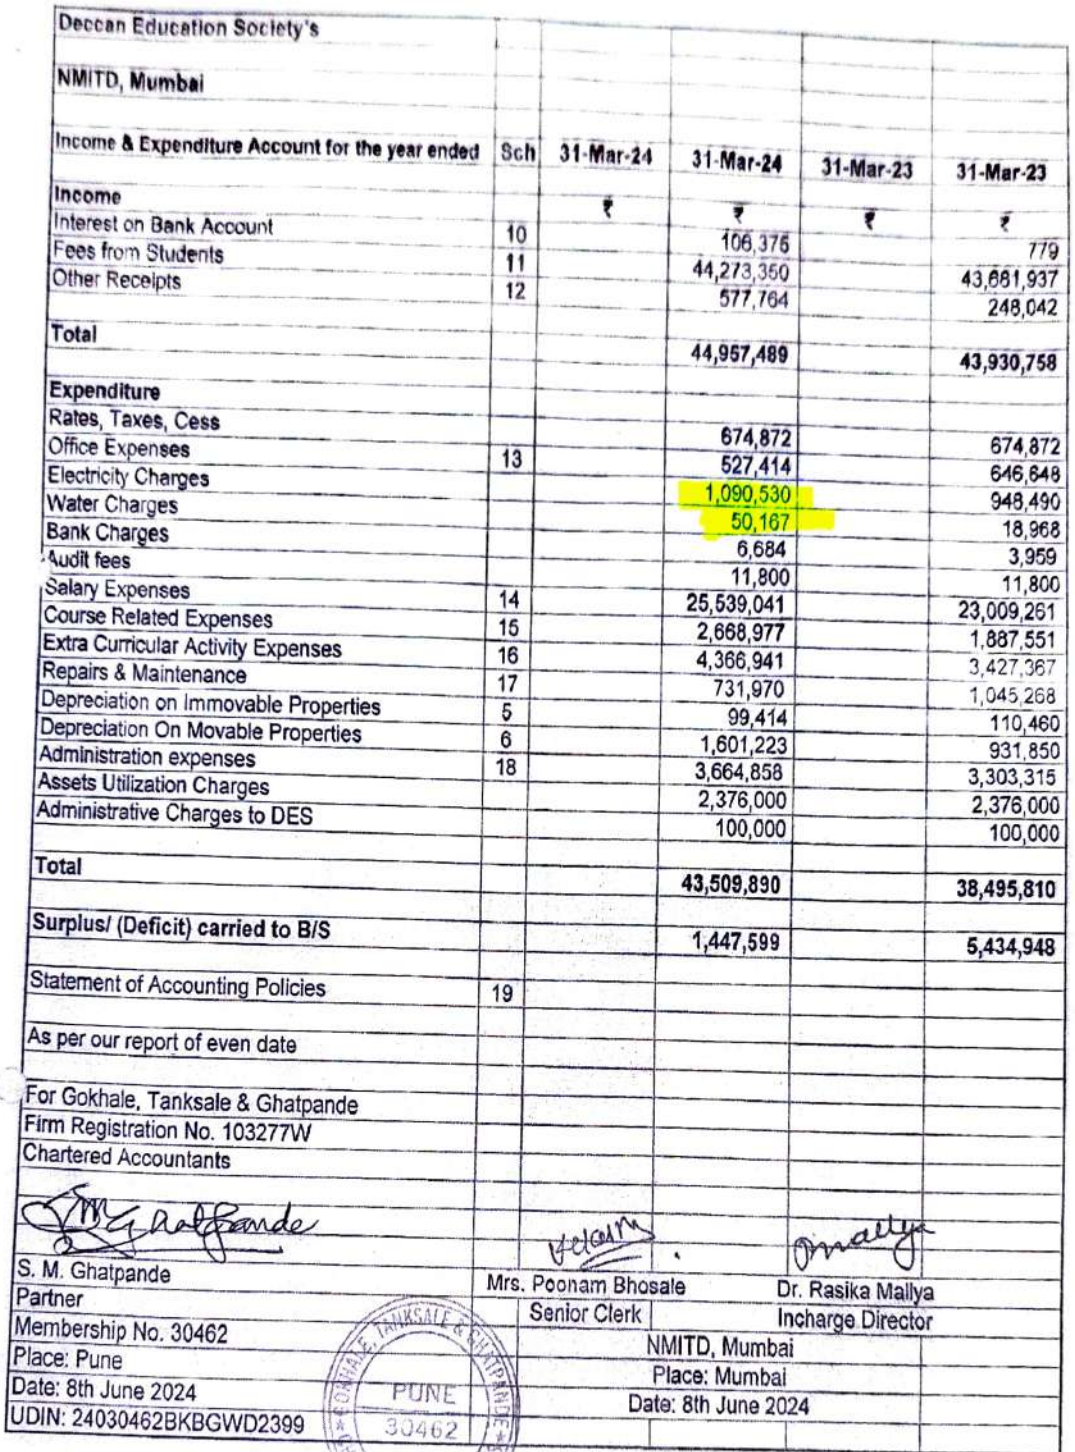 Deccan Education Society's
NMITD, Mumbai
Income & Expenditure Account for the year ended Sch 31-Mar-24 31-Mar-24 31-Mar-23 31-Mar-23
Income ₹ ₹ ₹ ₹
Interest on Bank Account 10 106,375 779
Fees from Students 11 44,273,350 43,681,937
Other Receipts 12 577,764 248,042
Total 44,957,489 43,930,758
Expenditure
Rates, Taxes, Cess 674,872 674,872
Office Expenses 13 527,414 646,648
Electricity Charges 1,090,530 948,490
Water Charges 50,167 18,968
Bank Charges 6,684 3,959
Audit fees 11,800 11,800
Salary Expenses 14 25,539,041 23,009,261
Course Related Expenses 15 2,668,977 1,887,551
Extra Curricular Activity Expenses 16 4,366,941 3,427,367
Repairs & Maintenance 17 731,970 1,045,268
Depreciation on Immovable Properties 5 99,414 110,460
Depreciation On Movable Properties 6 1,601,223 931,850
Administration expenses 18 3,664,858 3,303,315
Assets Utilization Charges 2,376,000 2,376,000
Administrative Charges to DES 100,000 100,000
Total 43,509,890 38,495,810
Surplus/ (Deficit) carried to B/S 1,447,599 5,434,948
Statement of Accounting Policies 19
As per our report of even date
For Gokhale, Tanksale & Ghatpande
Firm Registration No. 103277W
Chartered Accountants
S. M. Ghatpande Mrs. Poonam Bhosale Dr. Rasika Mallya
Partner Senior Clerk Incharge Director
Membership No. 30462 NMITD, Mumbai
Place: Pune Place: Mumbai
Date: 8th June 2024 Date: 8th June 2024
UDIN: 24030462BKBGWD2399
GOKHALE, TANKSALE & GHATPANDE
PUNE
30462